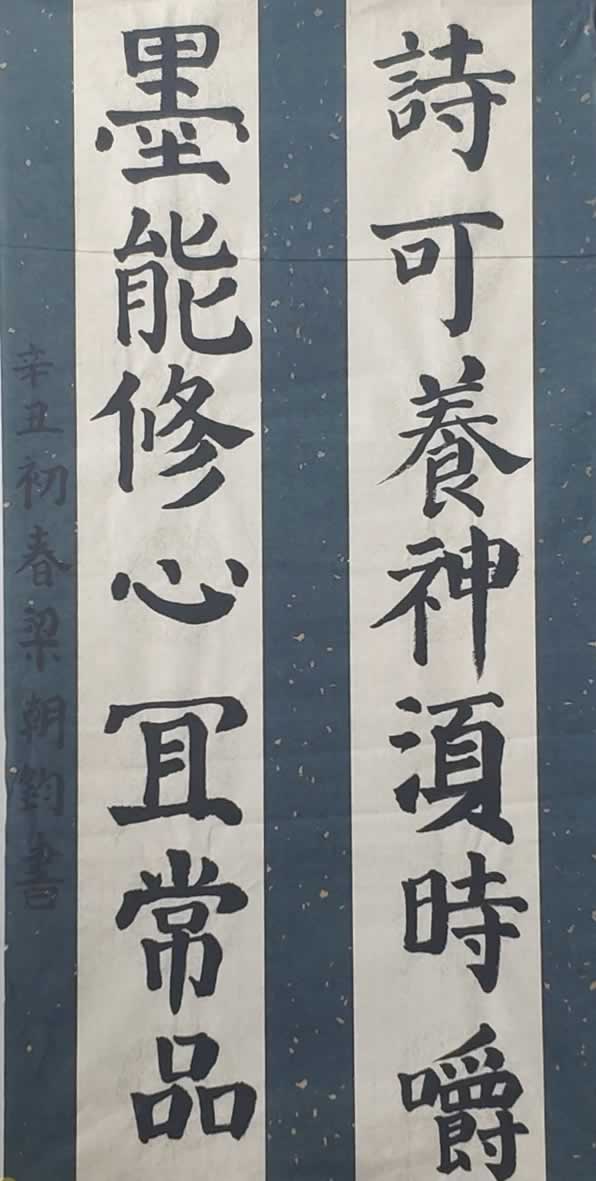 詩可養神須時嚼
墨能修心冝常品
辛丑初春梁朝鈞書